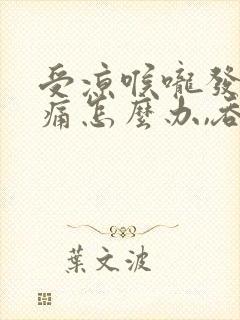 受涼喉嚨發
痛怎麼办,,吞
葉文波